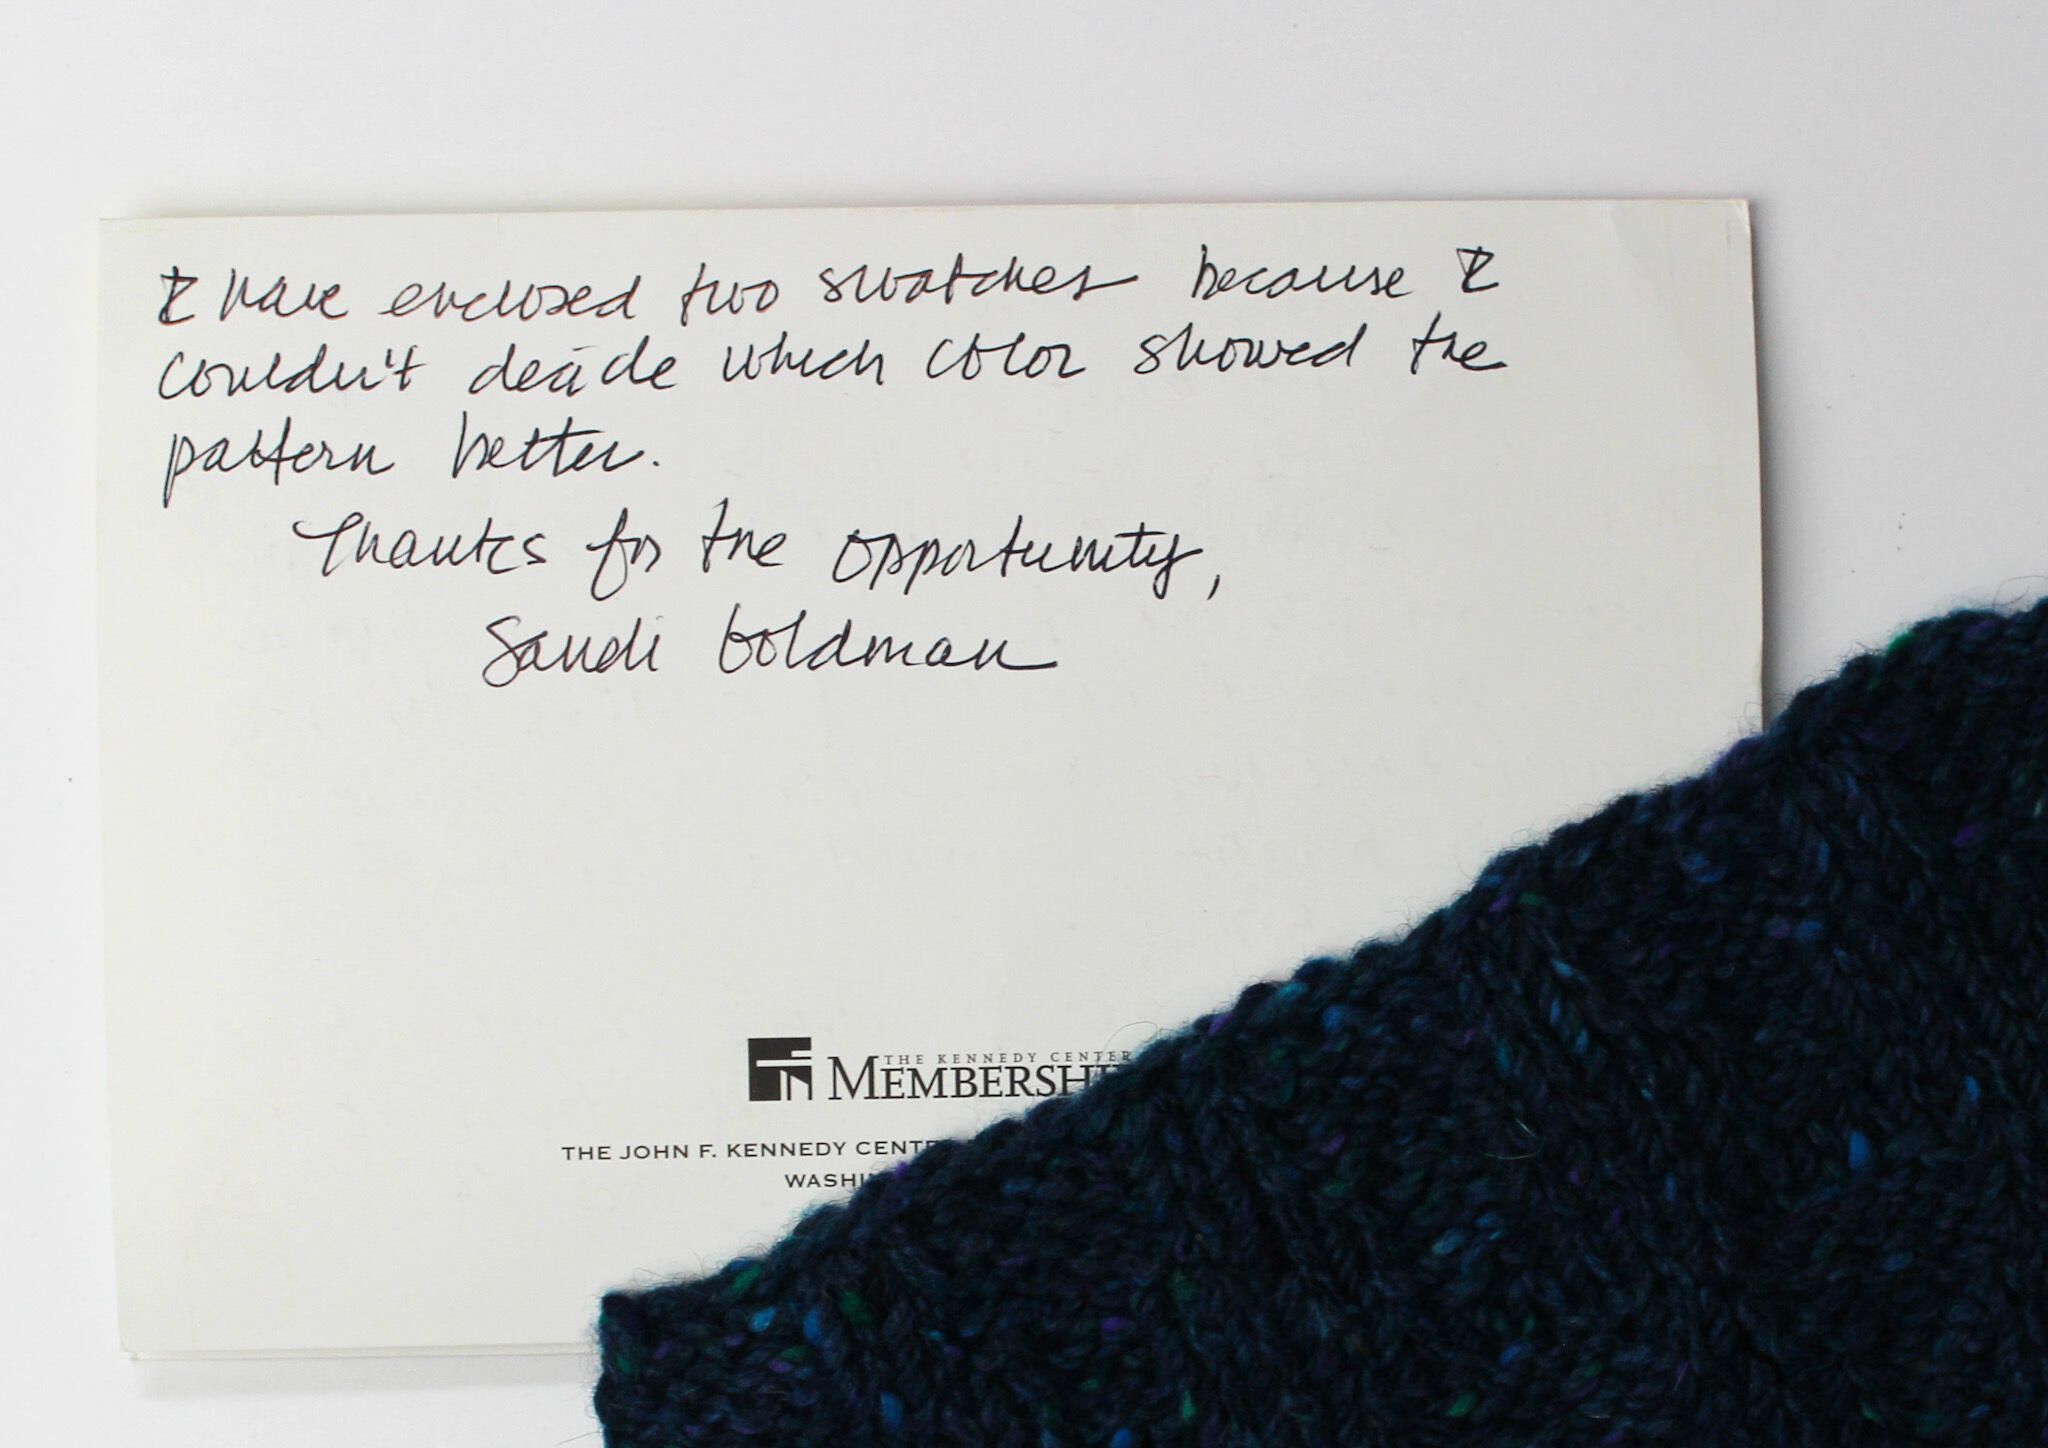 I have enclosed two swatches because I
couldn't decide which color showed the
pattern better.
Thanks for the opportunity,
Sandi Goldman
THE KENNEDY CENTER
MEMBERSHI
THE JOHN F. KENNEDY CENT
WASHI